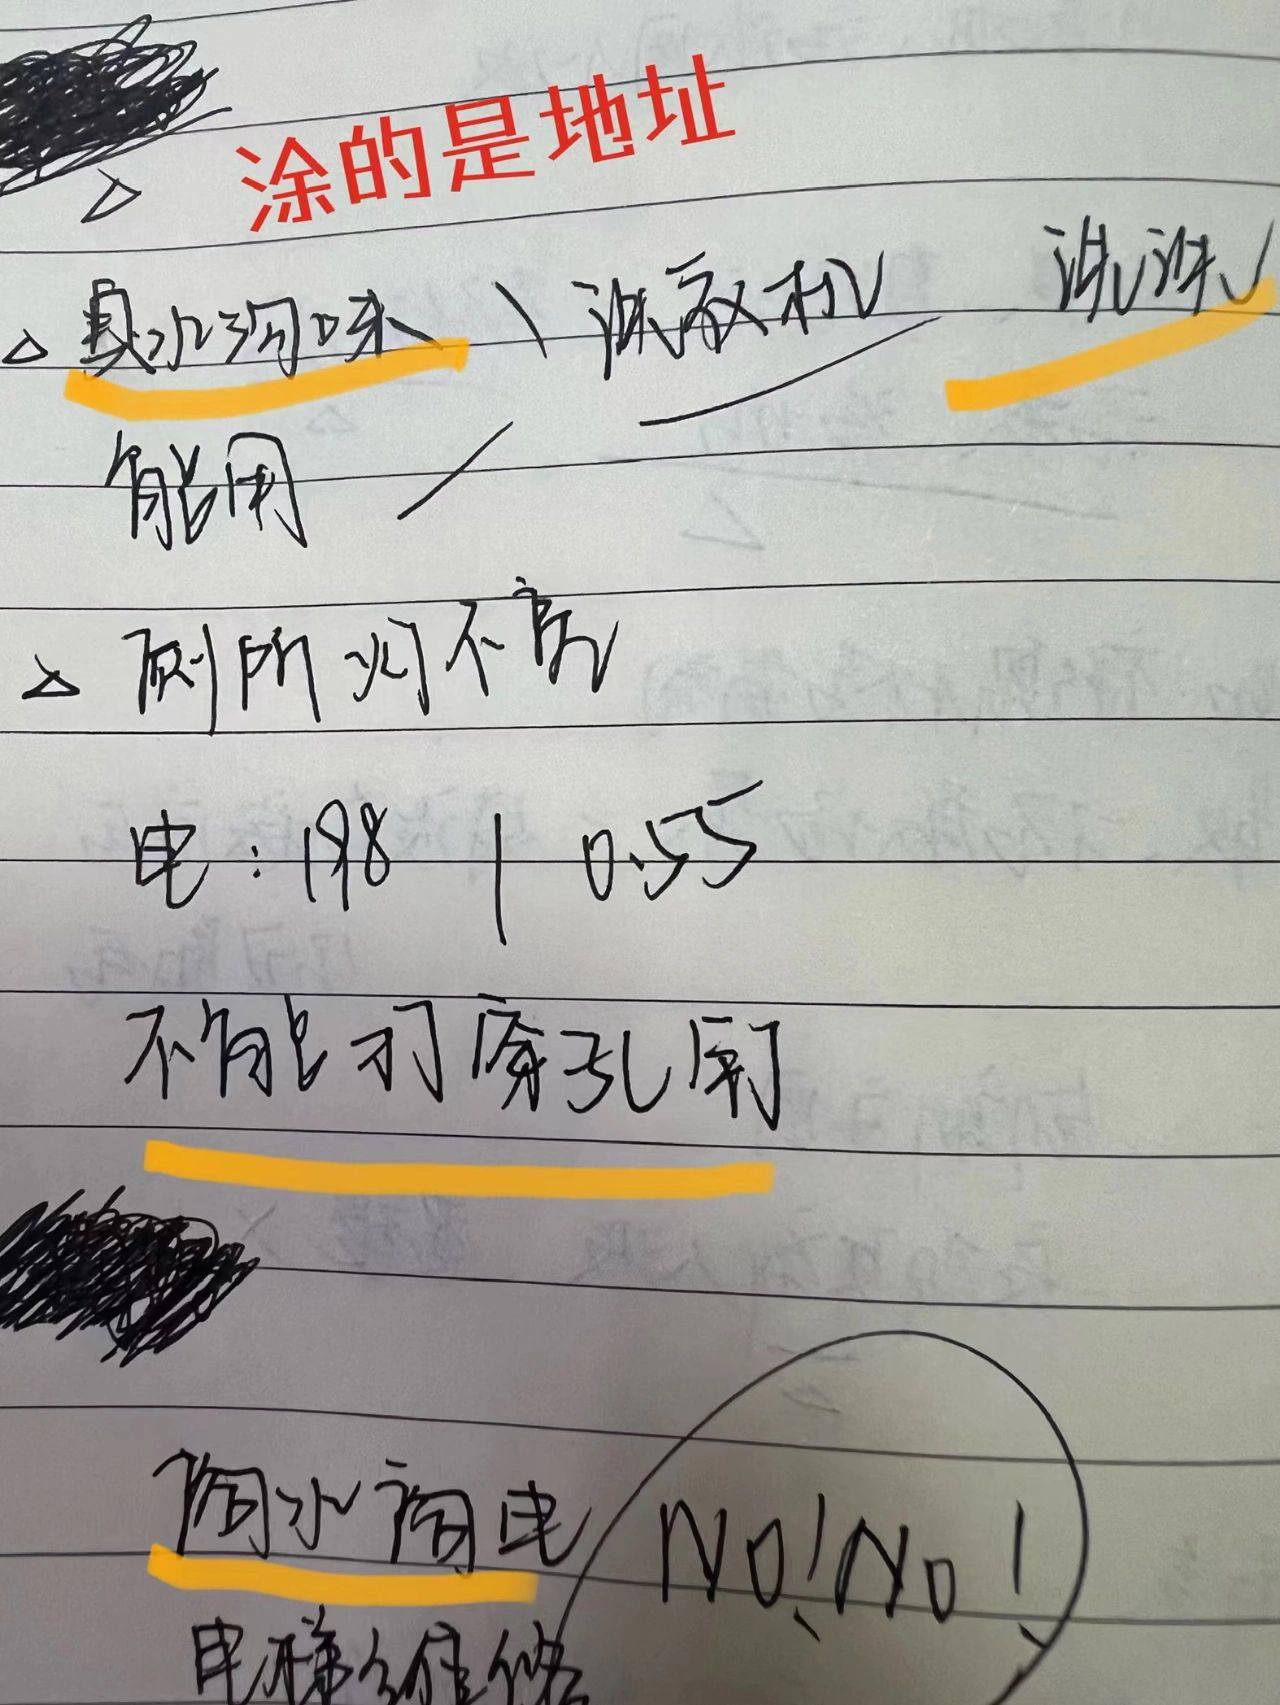 涂的是地址
△ 臭水沟味 \ 洗衣机 洗洗
能用
△ 厕所灯不亮
电:198 | 0.55
不能打穿孔钉
商水商电 NO!NO!
电梯维修